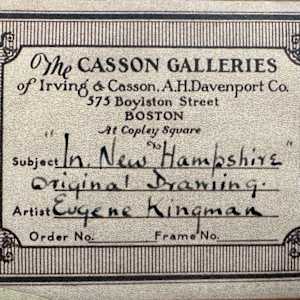 The CASSON GALLERIES
of Irving & Casson, A.H. Davenport Co.
575 Boylston Street
BOSTON
At Copley Square
Subject "In New Hampshire"
Original Drawing.
Artist Eugene Kingman
Order No. Frame No.